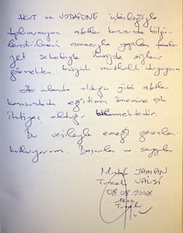 AKUT ve VODAFONE işbirliğiyle
toplumumuzun afetler konusunda bilgi-
lendirilmesi amacıyla yapılan faali-
yet sebebiyle sizleri
görmekten büyük mutluluk duyuyorum
alanda olduğu gibi afetler
konusunda eğitimin önemine çok
ihtiyacı olduğu bilinmektedir.
Bu vesileyle emeği geçenleri
kutluyorum. Başarılar ve saygılar
Mustafa YAMAN
Tunceli VALİSİ
08.08.2008